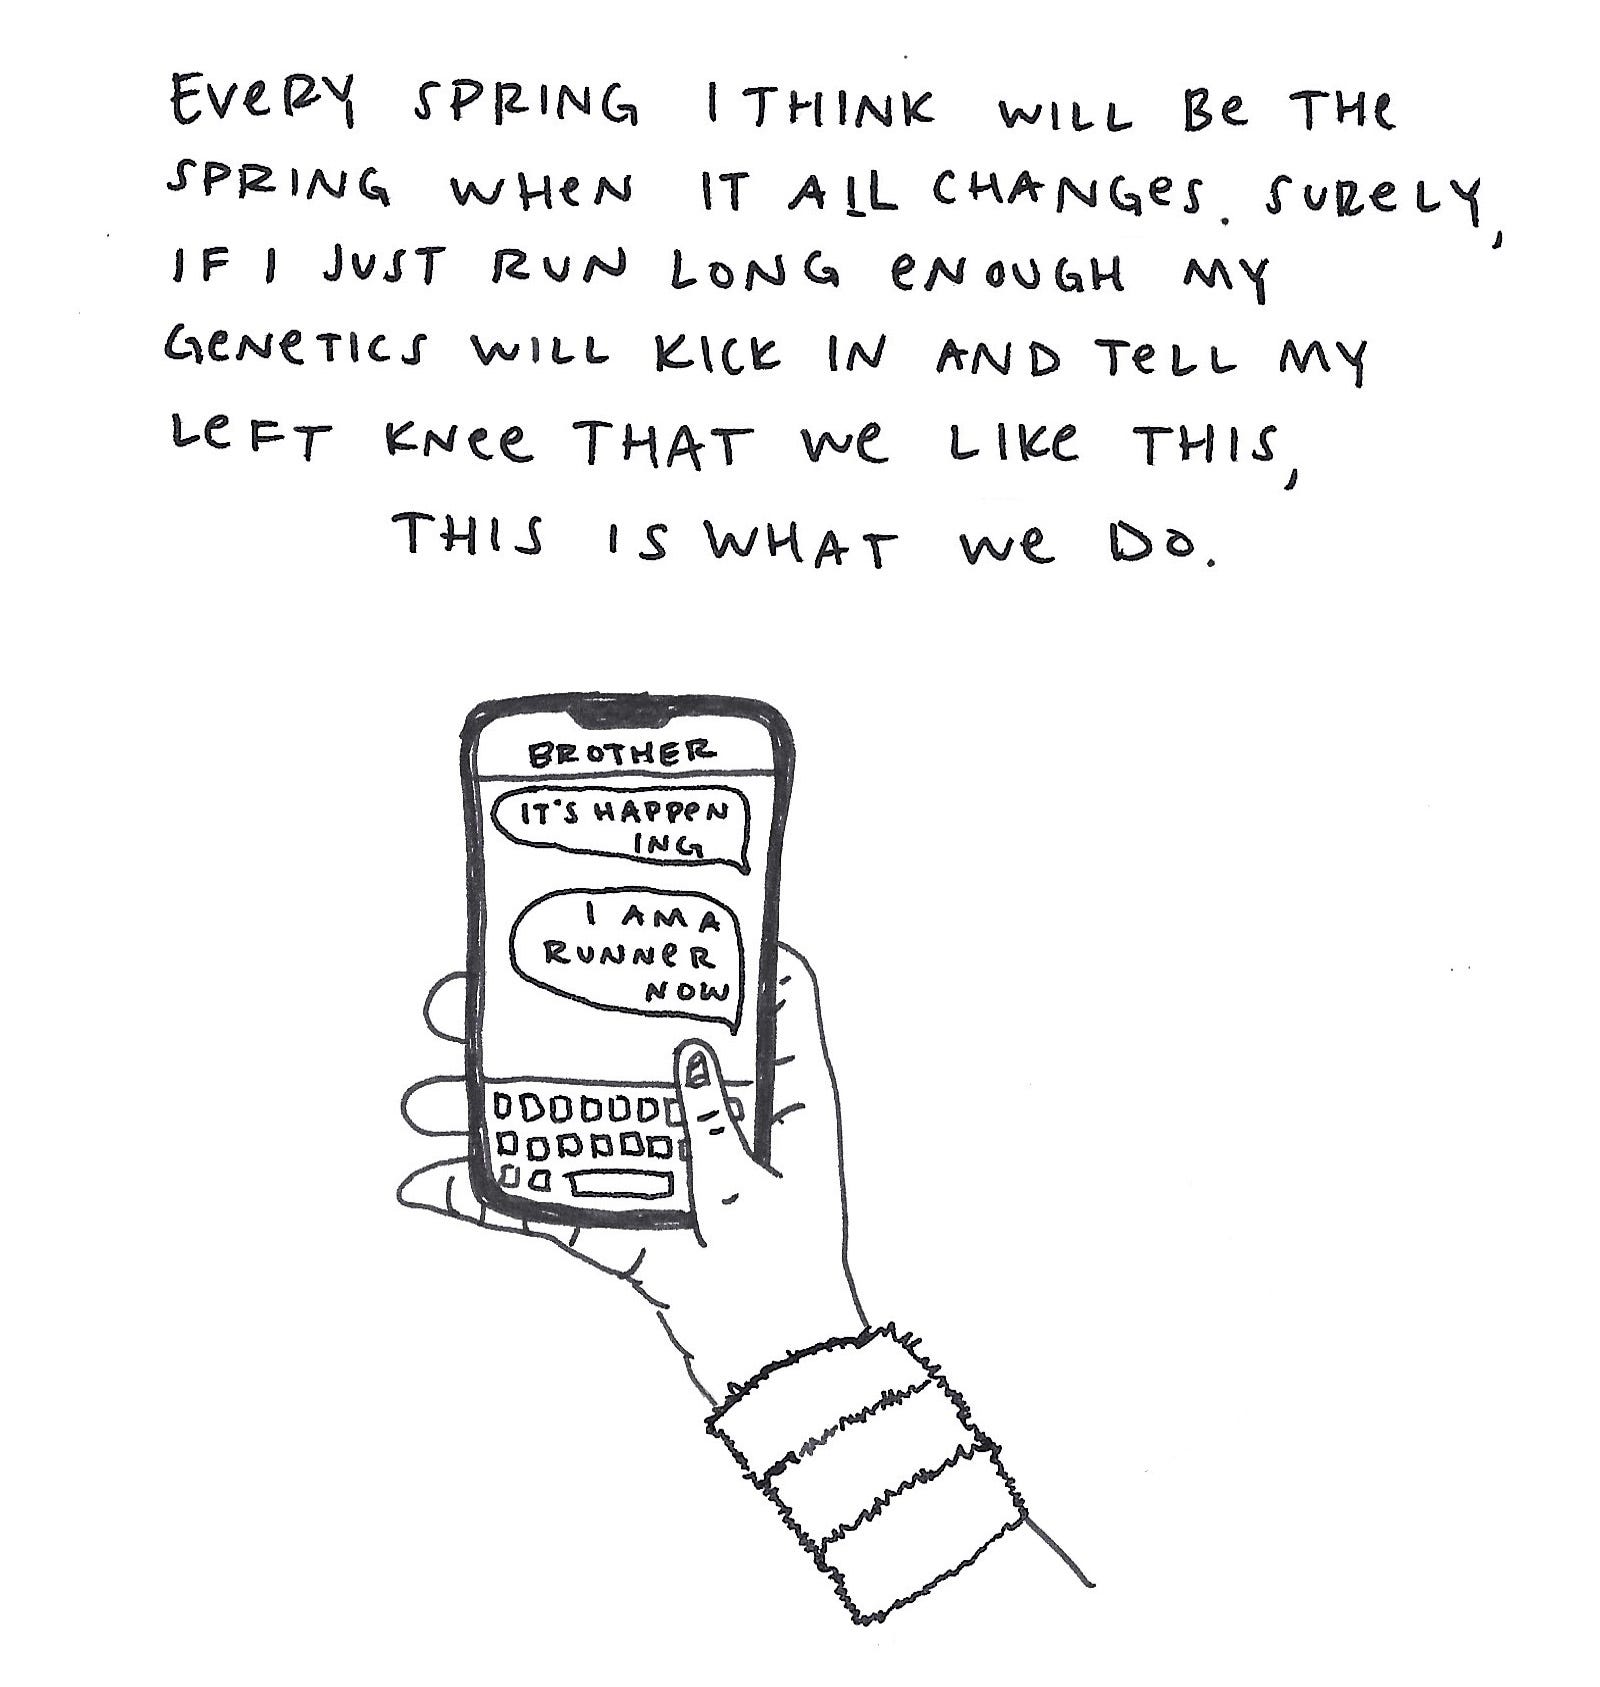 EVeRY SPRING I THINK WILL Be THe
SPRING WHeN IT ALL CHANGeS. SUReLY,
IF I JUST RUN LONG eNOUGH MY
GeNeTICS WILL KICK IN AND TeLL MY
LeFT KNee THAT We LIKe THIS,
THIS IS WHAT We DO.
BROTHER
IT'S HAPPeN
ING
I AM A
RUNNeR
NOW